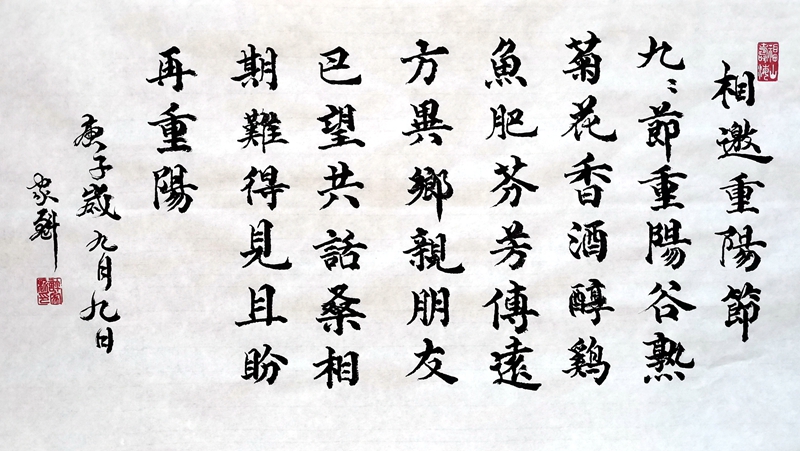 相邀重陽節
九〻節重陽谷熟
菊花香酒醇鷄
魚肥芬芳傳遠
方異鄉親朋友
已望共話桑相
期難得見且盼
再重陽
庚子歲九月九日
家魁